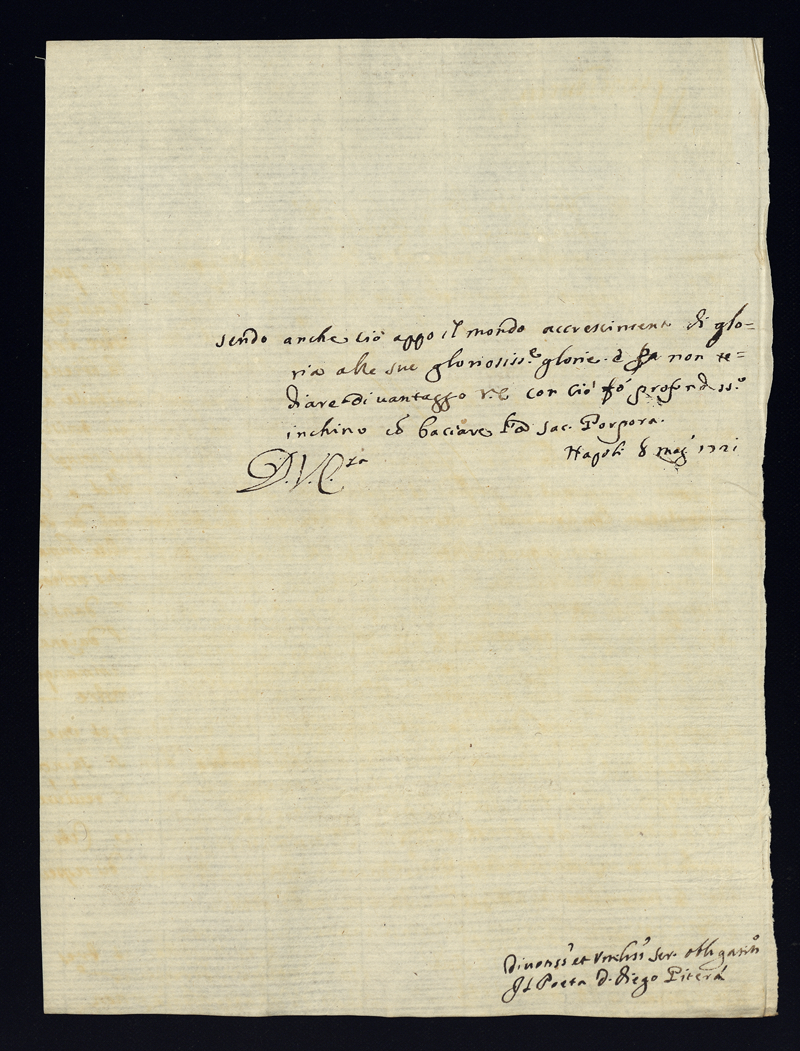 sendo anche ciò appo il mondo accrescimento di glo=
ria alle sue gloriosiss.e glorie. non te=
diare di vantaggo V.E. con ciò fò profondiss.o
inchino baciare sac. Porpora.
Napoli 8 mag 1721
D.V.E.za
Divotiss.o et Umiliss.o Ser. obligatiss.o
Il Poeta D. Diego Piterà